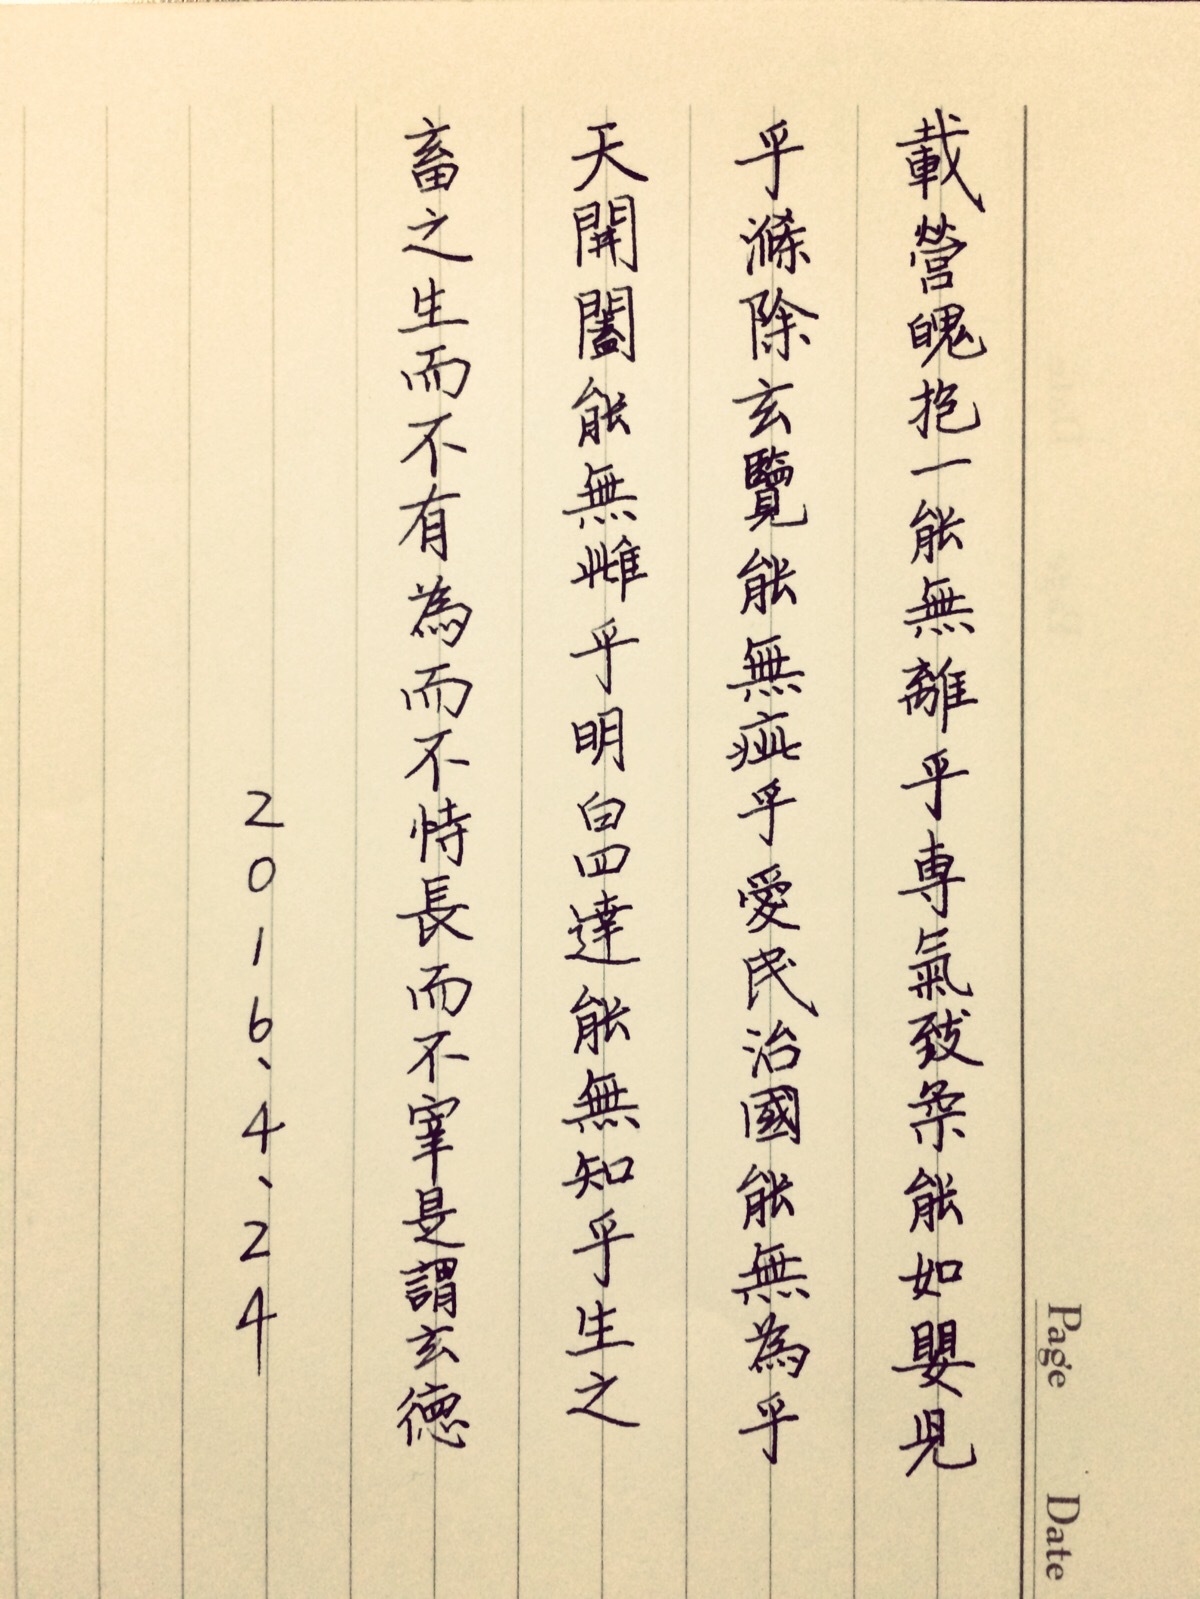 載營魄抱一能無離乎專氣致柔能如嬰兒
乎滌除玄覽能無疵乎愛民治國能無為乎
天開闔能無雌乎明白四達能無知乎生之
畜之生而不有為而不恃長而不宰是謂玄德
2016.4.24
Page Date